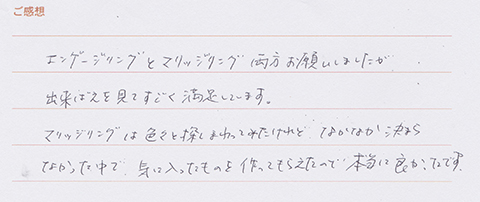 ご感想
エンゲージリングとマリッジリング両方お願いしましたが
出来ばえを見てすごく満足しています。
マリッジリングは色々と探しまわってみたけれど なかなか決まら
なかった中で 気に入ったものを作ってもらえたので 本当に良かったです。